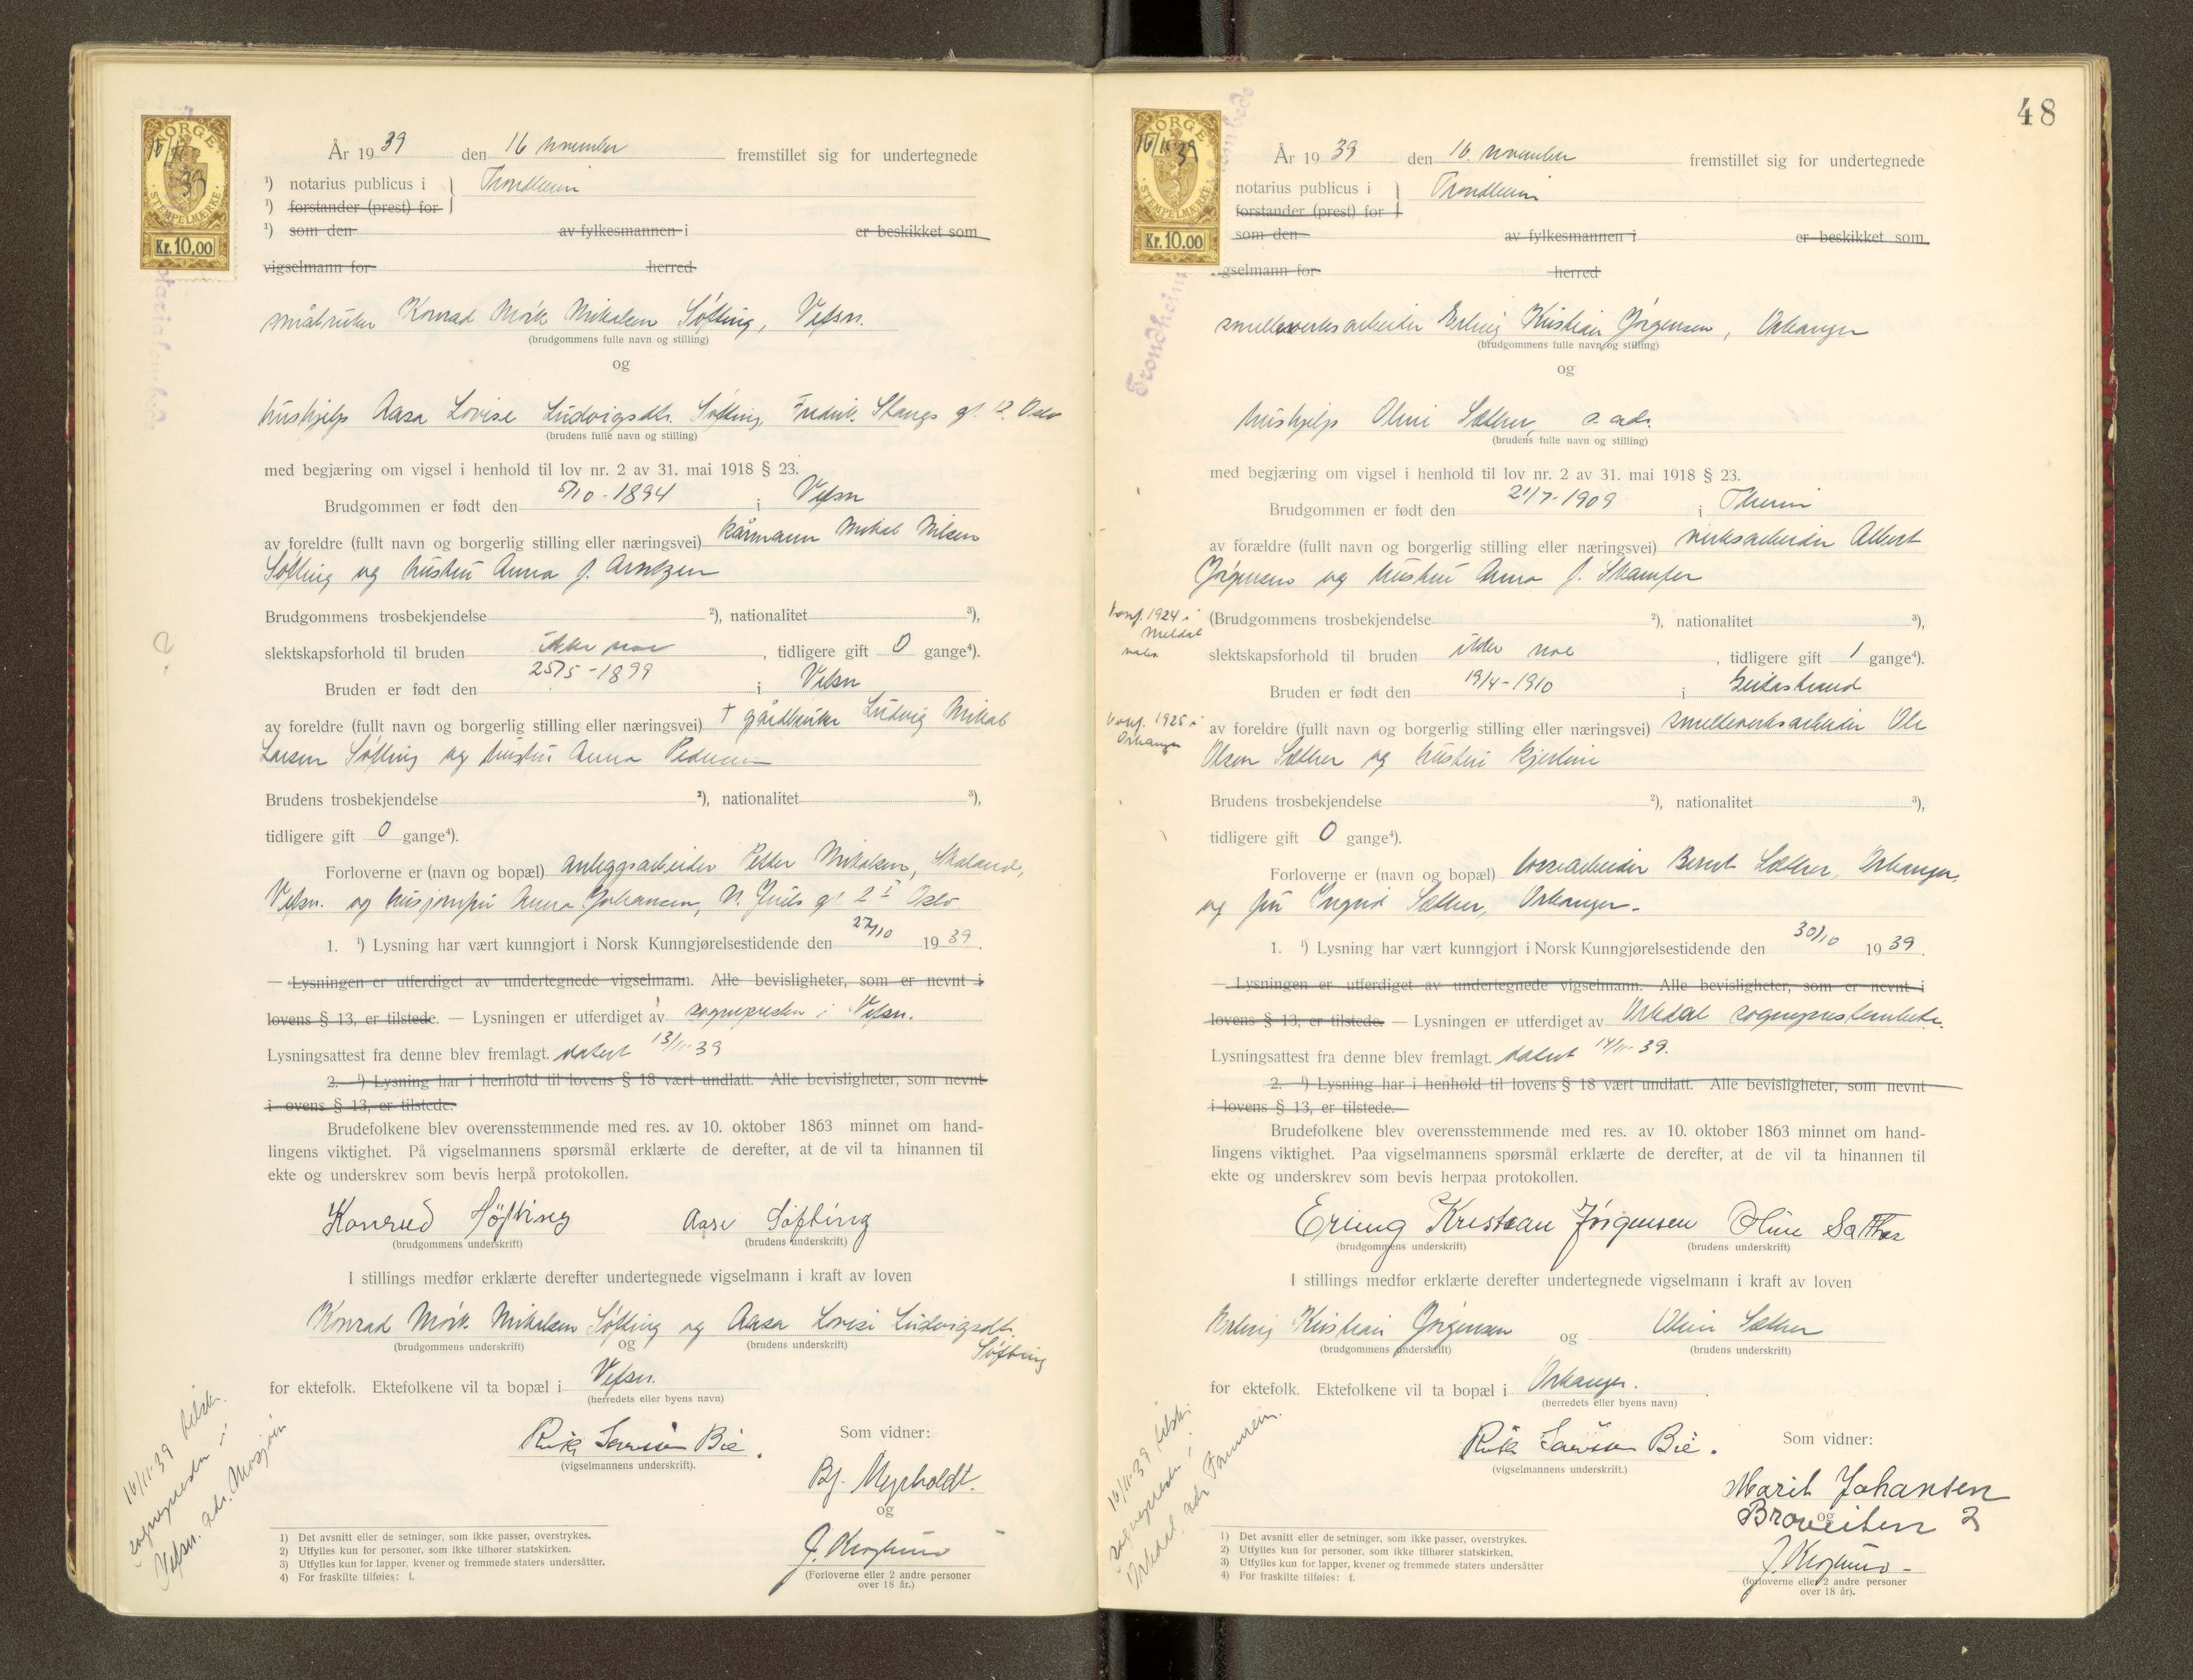 NORGE
16/11 39
STEMPELMERKE
Kr. 10.00
År 1939 den 16 november fremstillet sig for undertegnede
¹) notarius publicus i } Trondheim
¹) forstander (prest) for
¹) som den av fylkesmannen i er beskikket som
vigselmann for herred
småbruker Konrad Mørk Mikalsen Søfting, Vefsn.
(brudgommens fulle navn og stilling)
og
hushjelp Aasa Lovise Ludvigsdtr. Søfting, Fredrik Stangs gt. 12. Oslo
(brudens fulle navn og stilling)
med begjæring om vigsel i henhold til lov nr. 2 av 31. mai 1918 § 23.
Brudgommen er født den 5/10-1894 i Vefsn
av foreldre (fullt navn og borgerlig stilling eller næringsvei) kårmann Mikal Nilsen
Søfting og hustru Anna f. Arntzen
Brudgommens trosbekjendelse ²), nationalitet ³),
slektskapsforhold til bruden ikke noe, tidligere gift 0 gange⁴).
Bruden er født den 25/5-1899 i Vefsn
av foreldre (fullt navn og borgerlig stilling eller næringsvei) † gårdbruker Ludvig Mikal
Larsen Søfting og hustru Anna Pedersen
Brudens trosbekjendelse ²), nationalitet ³),
tidligere gift 0 gange⁴).
Forloverne er (navn og bopæl) anleggsarbeider Petter Mikalsen, Skaland,
Vefsn. og husjomfru Anna Johansen, N. Juels gt 2 I Oslo
1. ¹) Lysning har vært kunngjort i Norsk Kunngjørelsestidende den 27/10 1939.
— Lysningen er utferdiget av undertegnede vigselmann. Alle bevisligheter, som er nevnt i
lovens § 13, er tilstede. — Lysningen er utferdiget av sognepresten i Vefsn.
Lysningsattest fra denne blev fremlagt. datert 13/11-39
2. ¹) Lysning har i henhold til lovens § 18 vært undlatt. Alle bevisligheter, som nevnt
i ovens § 13, er tilstede.
Brudefolkene blev overensstemmende med res. av 10. oktober 1863 minnet om hand-
lingens viktighet. På vigselmannens spørsmål erklærte de derefter, at de vil ta hinannen til
ekte og underskrev som bevis herpå protokollen.
Konrad Søfting Aase Søfting
(brudgommens underskrift) (brudens underskrift)
I stillings medfør erklærte derefter undertegnede vigselmann i kraft av loven
Konrad Mørk Mikalsen Søfting og Aasa Lovise Ludvigsdtr.
Søfting
(brudgommens underskrift) og (brudens underskrift)
for ektefolk. Ektefolkene vil ta bopæl i Vefsn.
(herredets eller byens navn)
Bie.
(vigselmannens underskrift).
Som vidner:
Bj. Myrholdt.
og
J.
(Forloverne eller 2 andre personer
over 18 år.)
16/11-39 tilskr.
sognepresten i
Vefsn. adr. Mosjøen
1) Det avsnitt eller de setninger, som ikke passer, overstrykes.
2) Utfylles kun for personer, som ikke tilhører statskirken.
3) Utfylles kun for lapper, kvener og fremmede staters undersåtter.
4) For fraskilte tilføies: f.
48
NORGE
16/11 39
STEMPELMERKE
Kr. 10.00
Trondheim
År 1939 den 16. november fremstillet sig for undertegnede
notarius publicus i } Trondheim
forstander (prest) for
som den av fylkesmannen i er beskikket som
gselmann for herred
smelteverksarbeider Erling Kristian Jørgensen, Orkanger
(brudgommens fulle navn og stilling)
og
hushjelp Oline Sæther, s. ads.
(brudens fulle navn og stilling)
med begjæring om vigsel i henhold til lov nr. 2 av 31. mai 1918 § 23.
Brudgommen er født den 21/7-1909 i Theim
av forældre (fullt navn og borgerlig stilling eller næringsvei) verksarbeider Albert
Jørgensen og hustru Anna f. Skamfer
konf. 1924 i
Meldal
(Brudgommens trosbekjendelse ²), nationalitet ³),
slektskapsforhold til bruden ikke noe, tidligere gift 1 gange⁴).
Bruden er født den 19/4-1910 i Geitastrand
konf. 1925 i
Orkanger
av foreldre (fullt navn og borgerlig stilling eller næringsvei) smelteverksarbeider Ole
Olsen Sæther og hustru Kjerstine
Brudens trosbekjendelse ²), nationalitet ³),
tidligere gift 0 gange⁴).
Forloverne er (navn og bopæl) lossearbeider Bernt Sæther, Orkanger,
og fru Ingrid Sæther, Orkanger.
1. ¹) Lysning har vært kunngjort i Norsk Kunngjørelsestidende den 30/10 1939.
— Lysningen er utferdiget av undertegnede vigselmann. Alle bevisligheter, som er nevnt i
lovens § 13, er tilstede. — Lysningen er utferdiget av Orkdal sogneprestembete.
Lysningsattest fra denne blev fremlagt. datert 14/11-39.
2. ¹) Lysning har i henhold til lovens § 18 vært undlatt. Alle bevisligheter, som nevnt
i lovens § 13, er tilstede.
Brudefolkene blev overensstemmende med res. av 10. oktober 1863 minnet om hand-
lingens viktighet. Paa vigselmannens spørsmål erklærte de derefter, at de vil ta hinannen til
ekte og underskrev som bevis herpaa protokollen.
Erling Kristian Jørgensen Oline Sæther
(brudgommens underskrift) (brudens underskrift)
I stillings medfør erklærte derefter undertegnede vigselmann i kraft av loven
Erling Kristian Jørgensen og Oline Sæther
(brudgommens underskrift) (brudens underskrift)
for ektefolk. Ektefolkene vil ta bopæl i Orkanger.
(herredets eller byens navn)
Bie.
(vigselmannens underskrift.)
Som vidner:
Marit Johansen
og
Broveiten 2
J.
(forloverne eller 2 andre personer
over 18 år).
16/11-39 tilskr.
sognepresten i
Orkdal. adr Fannrem.
1) Det avsnitt eller de setninger, som ikke passer, overstrykes.
2) Utfylles kun for personer, som ikke tilhører statskirken.
3) Utfylles kun for lapper, kvener og fremmede staters undersåtter
4) For fraskilte tilføies: f.